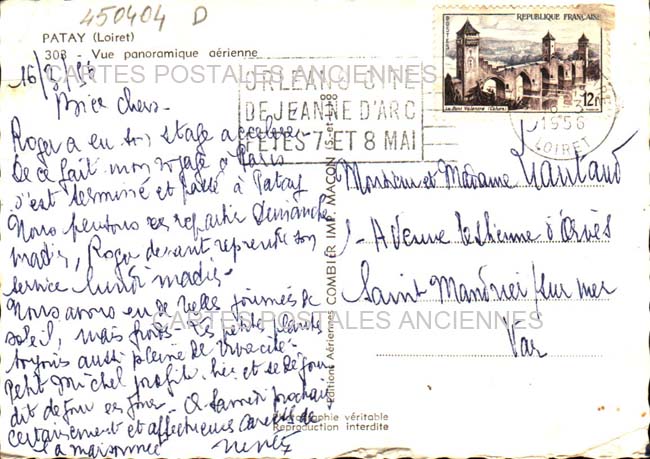 450404 D
PATAY (Loiret)
308 - Vue panoramique aérienne
16/3/56
CARTES POSTALES ANCIENNES
ORLEANS CITE
DE JEANNE D'ARC
FETES 7 ET 8 MAI
REPUBLIQUE FRANÇAISE
12f
1956
LOIRET
Bien chers
Roger a eu son stage accéléré
De ce fait mon voyage à Paris
s'est terminé et passé à Patay
Nous pensons repartir Dimanche
matin, Roger devant reprendre son
service lundi matin.
Nous avons eu de belles journées de
soleil, mais froides. Les petite plante
toujours aussi pleine de vivacité.
Petit Michel profite bien et se dé
dit de jour en jour. A Samedi prochain
certainement et affectueuses caresses de
la maisonnée
Monsieur et Madame Liautaud
Avenue Estienne d'Orves
Saint Mandrier sur mer
Var
CARTES POSTALES ANCIENNES
Editions Aériennes COMBIER IMP. MACON (S.-et-L.)
Photographie véritable
Reproduction interdite